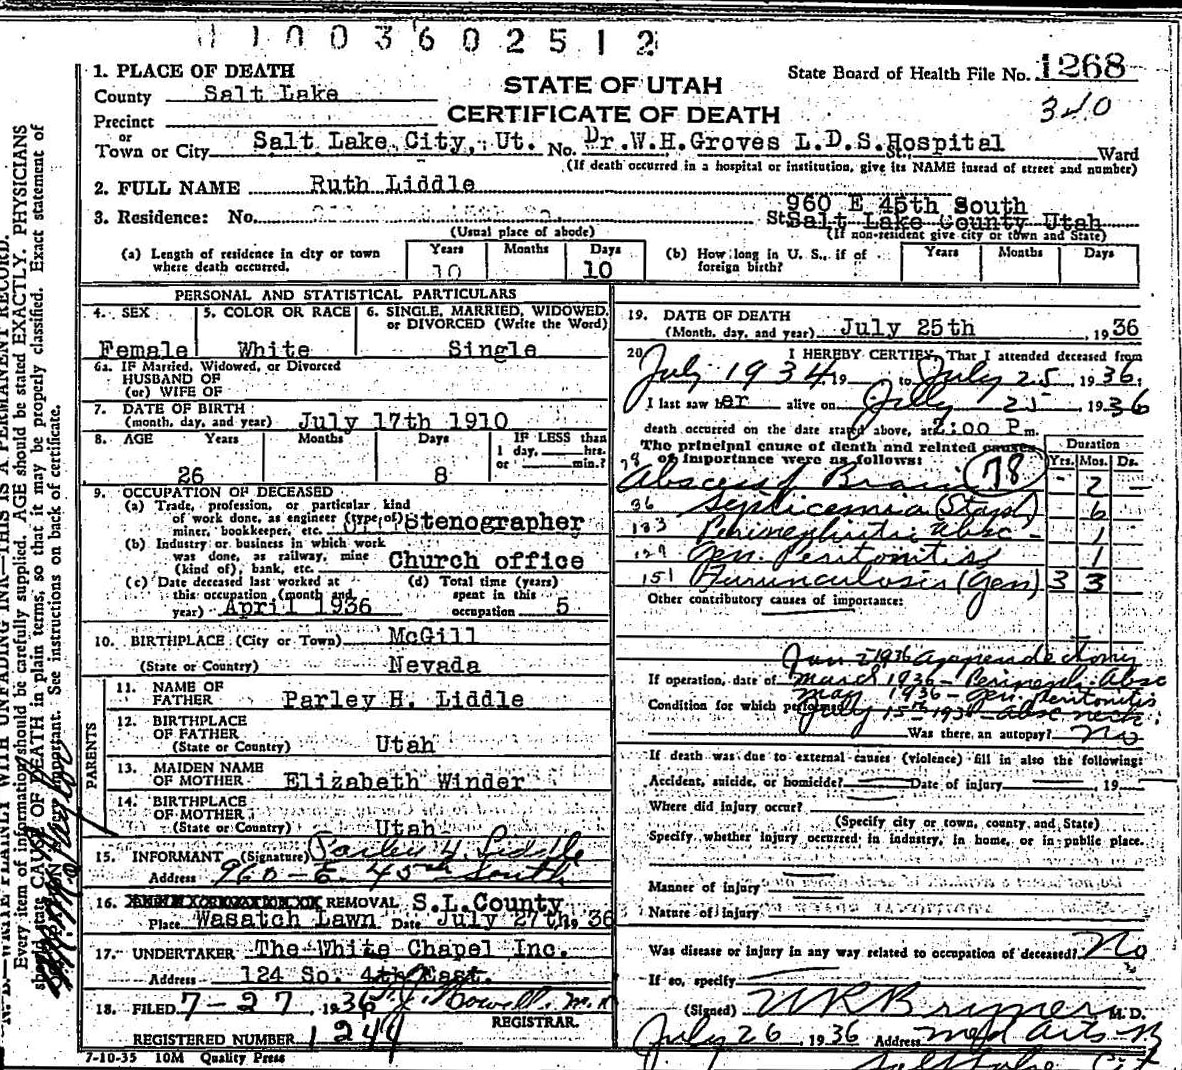 1 1 0 0 3 6 0 2 5 1 2
STATE OF UTAH
CERTIFICATE OF DEATH
State Board of Health File No. 1268
340
1. PLACE OF DEATH
County Salt Lake
Precinct
or
Town or City Salt Lake City, Ut. No. Dr.W.H.Groves L.D.S.Hospital St., Ward
(If death occurred in a hospital or institution, give its NAME instead of street and number)
2. FULL NAME Ruth Liddle
960 E 45th South
3. Residence: No. St. Salt Lake County Utah
(Usual place of abode) (If non-resident give city or town and State)
(a) Length of residence in city or town where death occurred. Years 10 Months Days 10
(b) How long in U. S., if of foreign birth? Years Months Days
PERSONAL AND STATISTICAL PARTICULARS
4. SEX Female
5. COLOR OR RACE White
6. SINGLE, MARRIED, WIDOWED, or DIVORCED (Write the Word) Single
6a. IF Married, Widowed, or Divorced
HUSBAND OF
(or) WIFE OF
7. DATE OF BIRTH
(month, day, and year) July 17th 1910
8. AGE Years 26 Months Days 8
IF LESS than
1 day, hrs.
or min.?
9. OCCUPATION OF DECEASED
(a) Trade, profession, or particular kind
of work done, as engineer (type of) Stenographer
miner, bookkeeper, etc.
(b) Industry or business in which work
was done, as railway, mine Church office
(kind of), bank, etc.
(c) Date deceased last worked at
this occupation (month and
year) April 1936
(d) Total time (years)
spent in this
occupation 5
10. BIRTHPLACE (City or Town) McGill
(State or Country) Nevada
PARENTS
11. NAME OF
FATHER Parley H. Liddle
12. BIRTHPLACE
OF FATHER
(State or Country) Utah
13. MAIDEN NAME
OF MOTHER Elizabeth Winder
14. BIRTHPLACE
OF MOTHER
(State or Country) Utah
15. INFORMANT (Signature) Parley H. Liddle
Address 960 - E. 45th South
16. REMOVAL S.L.County
Place Wasatch Lawn Date July 27th 19 36
17. UNDERTAKER The White Chapel Inc.
Address 124 So. 4th East.
18. FILED 7-27, 1936
REGISTRAR.
REGISTERED NUMBER 1244
7-10-35 10M Quality Press
19. DATE OF DEATH
(Month, day, and year) July 25th, 1936
20. I HEREBY CERTIFY, That I attended deceased from
July 1934 19 to July 25, 1936.
I last saw her alive on July 25, 1936
death occurred on the date stated above, at 2:00 P.m.
The principal cause of death and related causes
of importance were as follows: 78
Duration
Yrs. Mos. Ds.
78 Abscess of Brain - 2 -
36 Septicemia (Staph) 6
133 Perinephritic Absc - 1
129 Gen. Peritonitis 1
151 Furunculosis (Gen) 3 3
Other contributory causes of importance:
Jan 2 1936 appendectomy
If operation, date of March 1936 - Perineph. Absc
May 1936 - Gen. Peritonitis
Condition for which performed July 15th 1936 - absc neck.
Was there an autopsy? No
If death was due to external causes (violence) fill in also the following:
Accident, suicide, or homicide? Date of injury 19
Where did injury occur?
(Specify city or town, county and State)
Specify whether injury occurred in industry, in home, or in public place.
Manner of injury
Nature of injury
Was disease or injury in any way related to occupation of deceased? No
If so, specify
(Signed) M. D.
July 26, 1936 Address Med Arts B
Salt Lake City
N. B.—WRITE PLAINLY WITH UNFADING INK—THIS IS A PERMANENT RECORD.
Every item of information should be carefully supplied. AGE should be stated EXACTLY. PHYSICIANS
should state CAUSE OF DEATH in plain terms, so that it may be properly classified. Exact statement of
important. See instructions on back of certificate.